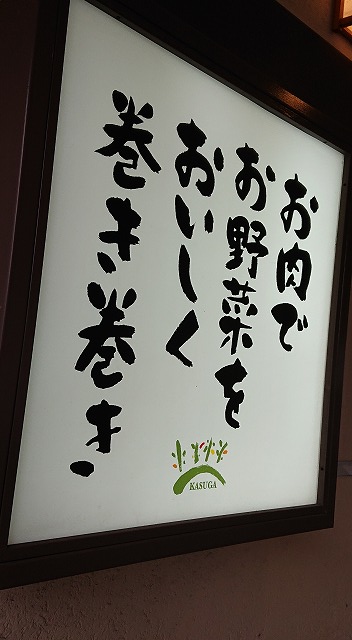 お肉で
お野菜を
おいしく
巻き巻き
KASUGA